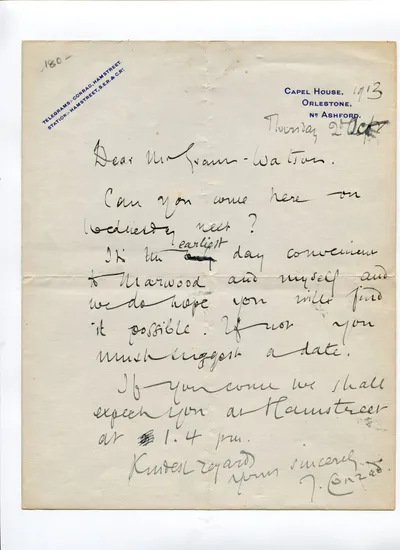 -180-
TELEGRAMS:- CONRAD, HAMSTREET.
STATION:- HAMSTREET, S.E.R. & C.R?
CAPEL HOUSE,
ORLESTONE,
NR ASHFORD.
1913
Thursday 2d Oct
Dear Mr Grant-Watson.
Can you come here on
Wednesday next?
It's the earliest day convenient
to Marwood and myself and
we do hope you will find
it possible. If not you
must suggest a date.
If you come we shall
expect you at Hamstreet
at 1.4 pm.
Kindest regards
Yours sincerely
J. Conrad.